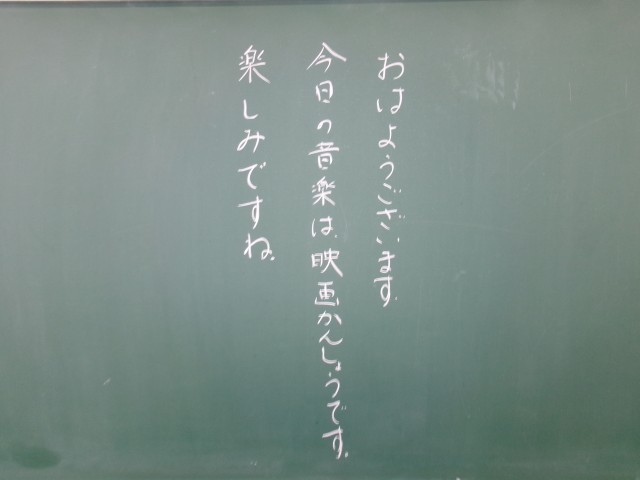 おはようございます.
今日の音楽は、映画かんしょうです.
楽しみですね.